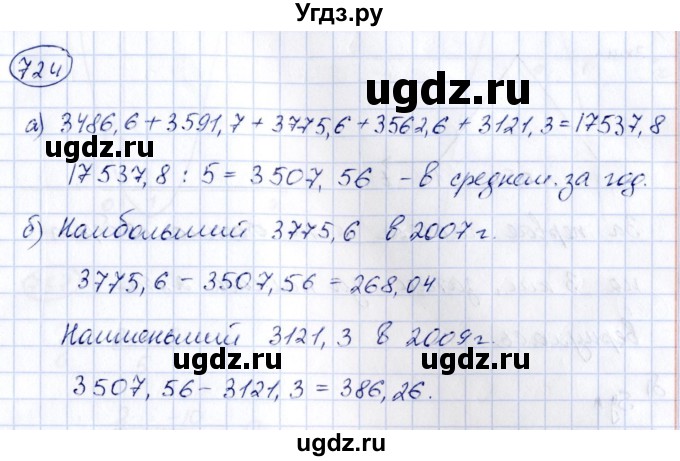 Угдз.ру
724
ugdz.ru
а) 3486,6 + 3591,7 + 3775,6 + 3562,6 + 3121,3 = 17537,8
ugdz.ru
17537,8 : 5 = 3507,56 - в среднем. за год.
ugdz.ru
б) Наибольший 3775,6 в 2007 г.
ugdz.ru
3775,6 - 3507,56 = 268,04
ugdz.ru
Наименьший 3121,3 в 2009 г.
ugdz.ru
ugdz.ru
3507,56 - 3121,3 = 386,26.
ugdz.ru